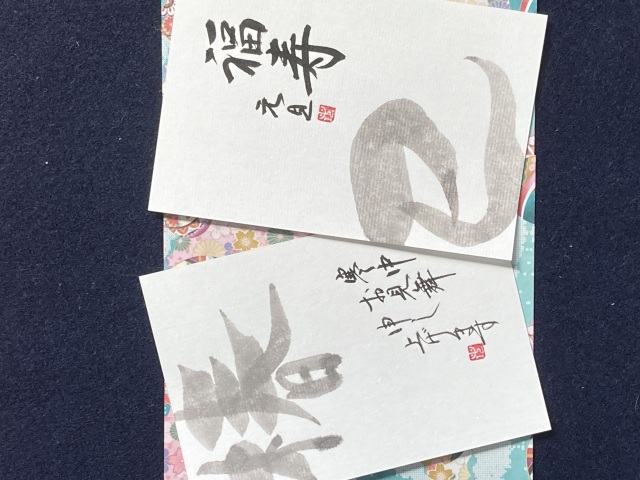 福寿
元旦
巳
寒中
お見舞
申し
上げます
椿